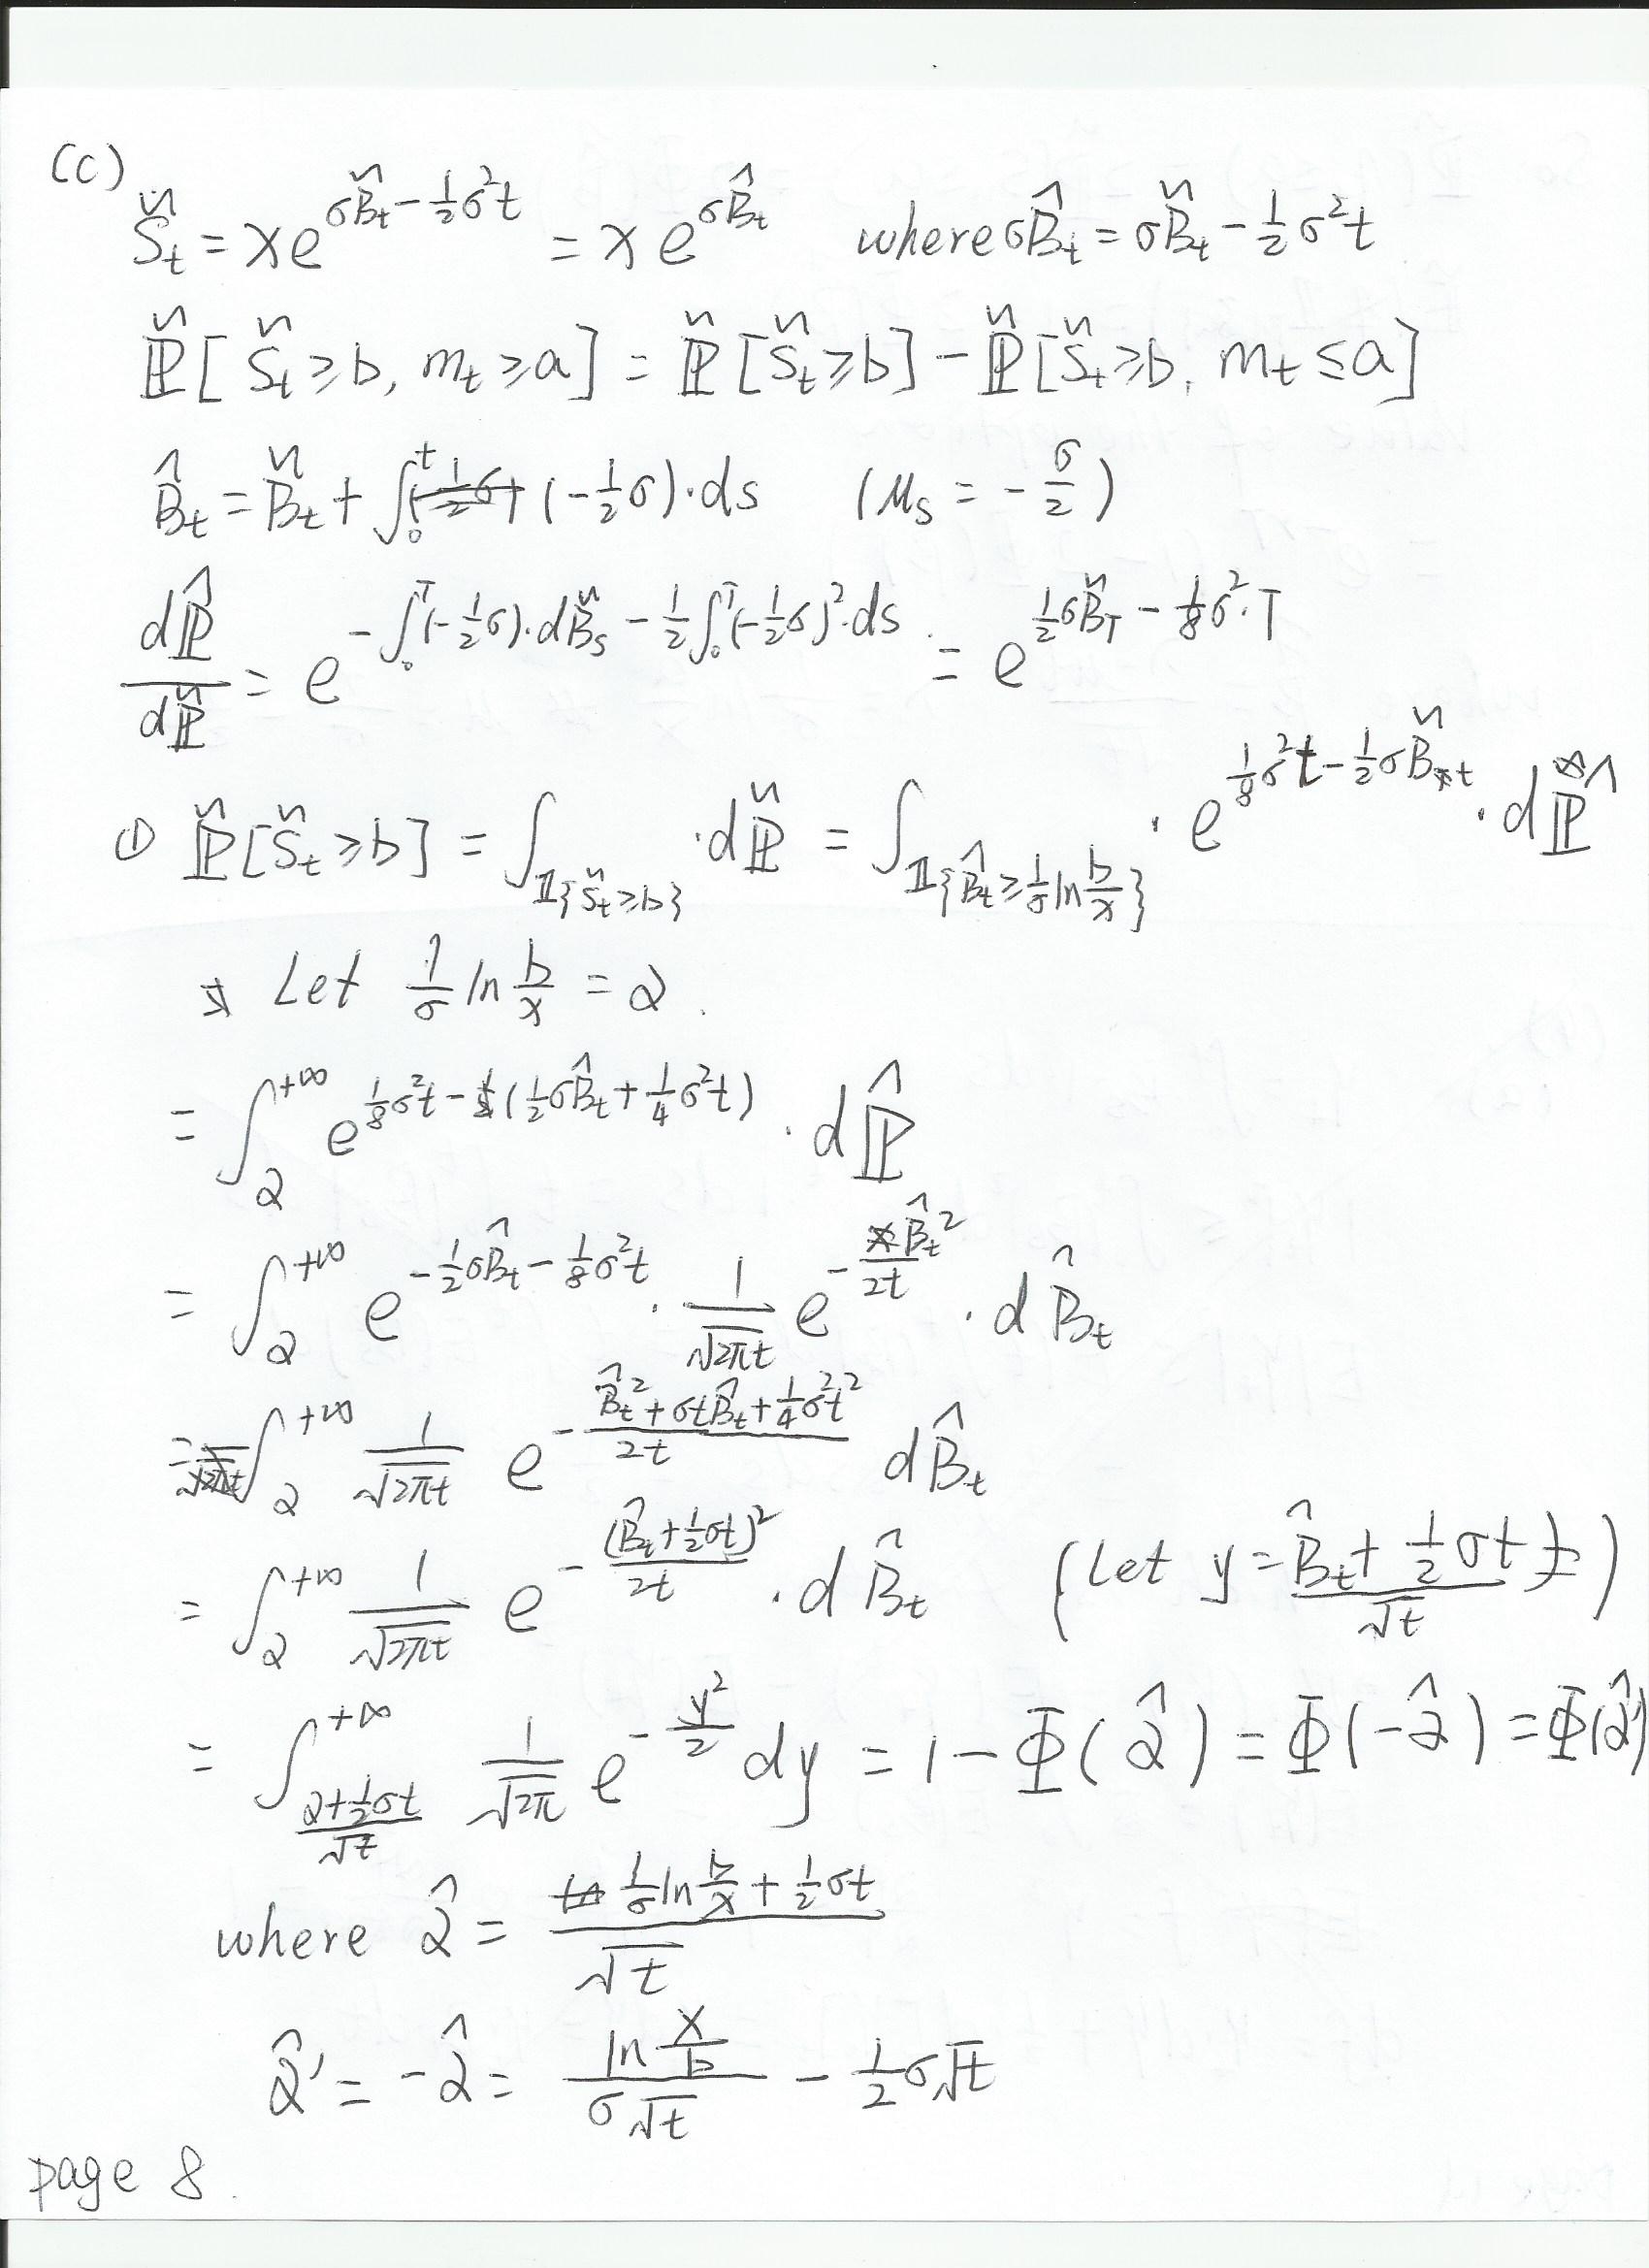 (c)
S̃_t = x e^{σB̃_t - ½σ²t} = x e^{σB̂_t} where σB̂_t = σB̃_t - ½σ²t
ℙ̃[S̃_t ≥ b, m_t ≥ a] = ℙ̃[S̃_t ≥ b] - ℙ̃[S̃_t ≥ b, m_t ≤ a]
B̂_t = B̃_t + ∫_0^t (-½σ)·ds (μ_s = -σ/2)
dℙ̂/dℙ̃ = e^{-∫_0^T (-½σ)·dB̃_s - ½∫_0^T (-½σ)²·ds} = e^{½σB̃_T - ⅛σ²·T}
① ℙ̃[S̃_t ≥ b] = ∫_{𝟙{S̃_t ≥ b}} ·dℙ̃ = ∫_{𝟙{B̂_t ≥ (1/σ) ln(b/x)}} · e^{⅛σ²t - ½σB̃_t} · dℙ̂
Let (1/σ) ln(b/x) = α.
= ∫_α^{+∞} e^{⅛σ²t - (½σB̂_t + ¼σ²t)} · dℙ̂
= ∫_α^{+∞} e^{-½σB̂_t - ⅛σ²t} · (1/√(2πt)) e^{-B̂_t²/(2t)} · dB̂_t
= ∫_α^{+∞} (1/√(2πt)) e^{-(B̂_t² + σtB̂_t + ¼σ²t²)/(2t)} dB̂_t
= ∫_α^{+∞} (1/√(2πt)) e^{-(B̂_t + ½σt)²/(2t)} · dB̂_t (Let y = (B̂_t + ½σt)/√t)
= ∫_{(α + ½σt)/√t}^{+∞} (1/√(2π)) e^{-y²/2} dy = 1 - Φ(α̂) = Φ(-α̂) = Φ(α̂')
where α̂ = ((1/σ) ln(b/x) + ½σt)/√t
α̂' = -α̂ = ln(x/b)/(σ√t) - ½σ√t
page 8.